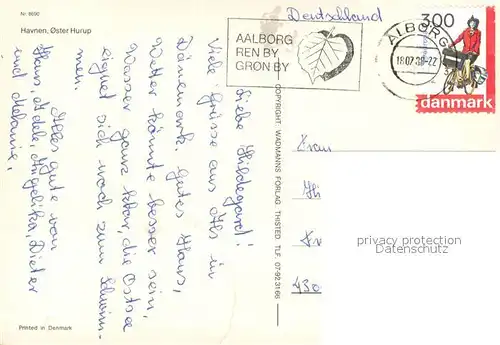 Nr 8690
Havnen, Øster Hurup
Liebe Hildegard!
Viele Grüsse aus Als in
Dänemark. Gutes Haus,
Wetter könnte besser sein,
Wasser ganz klar, die Ostsee
eignet sich noch zum Schwim-
men.
Alles gute von
Hans, Adele, Angelika, Dieter
und Melanie,
Printed in Denmark
COPYRIGHT WADMANNS FORLAG THISTED TLF. 07-92 31 66
Deutschland
AALBORG
REN BY
GRØN BY
ALBORG
18.07.88-22
3.00
danmark
Frau
430
privacy protection
Datenschutz